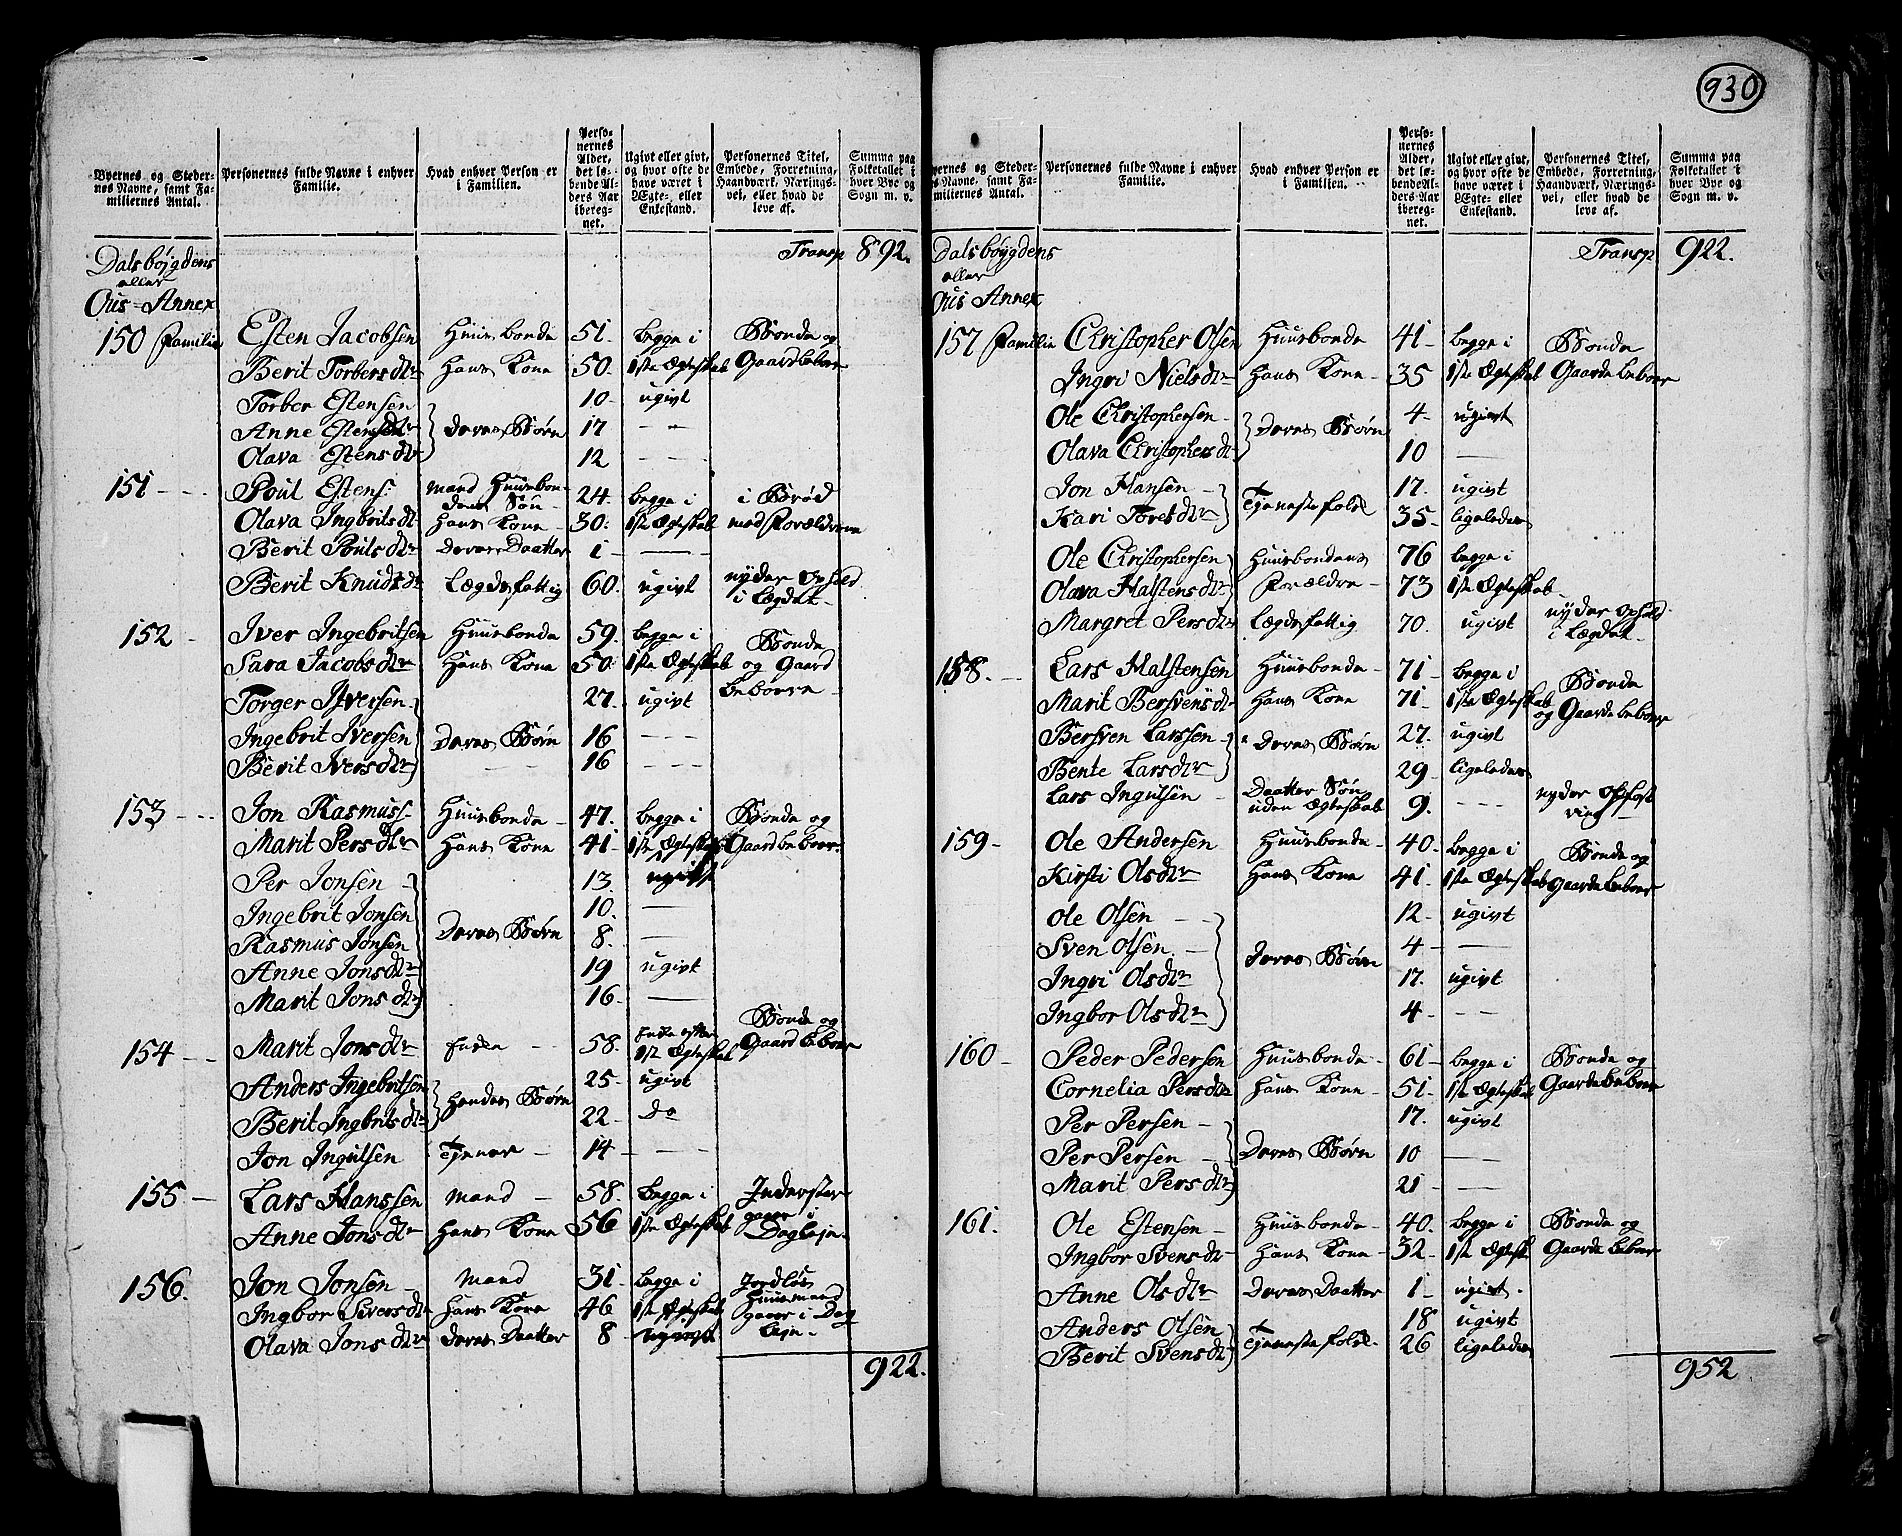 930
Byernes og Stedernes Navne, samt Familiernes Antal.
Personernes fulde Navne i enhver Familie.
Hvad enhver Person er i Familien.
Personernes Alder, det løbende Alders Aar iberegnet.
Ugivt eller givt, og hvor ofte de have været i Ægte- eller Enkestand.
Personernes Titel, Embede, Forretning, Haandværk, Næringsvei, eller hvad de leve af.
Summa paa Folketallet i hver Bye og Sogn m. v.
Dalsbøygdens Transp 892.
eller
Ous-Annex
150 Familie Esten Jacobsen Huusbonde 51. begge i Bonde og
Berit Torbersdtr hans Kone 50. 1ste Ægteskab Gaardbeboer
Torber Estensen 10- ugivt
Anne Estensdtr deres Børn 17 - -
Olava Estensdtr 12 - -
151 - - - Poul Estens: mand Huusbon- 24. begge i i Brød
dens Søn
Olava Ingbritsdt hans Kone - 30. 1ste Ægteskab med Forældrene
Berit Poulsdtr deres Daatter 1 - -
Berit Knudsdtr Lægdsfattig 60. ugivt nyder Ophold
i Lægdet-
152 - Iver Ingebritsen Huusbonde 59. begge i Bonde
Sara Jacobsdtr hans Kone 50. 1ste Ægteskab og Gaard
beboere -
Torger Iversen 27. ugivt
Ingebrit Iversen deres Børn 16 - - -
Berit Iversdtr 16 - - -
153 - - - Jon Rasmuss- Huusbonde - 47. begge i Bonde og
Marit Persdtr hans Kone 41- 1ste Ægteskab Gaardbeboer.
Per Jonsen 13. ugivt
Ingebrit Jonsen 10. -
Rasmus Jonsen deres Børn 8. -
Anne Jonsdtr 19 ugivt
Marit Jonsdtr 16- -
154 - - Marit Jonsdtr Enke - - 58. Enke efter Bonde og
1st Ægteskab Gaardbeboer
Anders Ingebritsen 25- ugivt
Berit Ingbritsdtr hendes Børn 22- Do
Jon Ingulsen Tjener - 14- - - -
155 - Lars Hanssen mand - 58. begge i Inderster
gaaer i
Anne Jonsdtr hans Kone 56 1ste Ægteskab Dagleje.
156. Jon Jonsen - mand 31- begge i Jordløs
Ingbor Siversdtr hans Kone 46 1ste Ægteskab Huusmand
gaaer i Dag
Olava Jonsdtr deres Daatter 8 - ugivt leje.
922.
Byernes og Stedernes Navne, samt Familiernes Antal.
Personernes fulde Navne i enhver Familie.
Hvad enhver Person er i Familien.
Personernes Alder, det løbende Alders Aar iberegnet.
Ugivt eller givt, og hvor ofte de have været i Ægte- eller Enkestand.
Personernes Titel, Embede, Forretning, Haandværk, Næringsvei, eller hvad de leve af.
Summa paa Folketallet i hver Bye og Sogn m. v.
Dalsbøygdens Transp 922.
eller
Ous Annex
157 Familie Christopher Olsen Huusbonde 41- begge i Bonde
Ingri Nielsdtr hans Kone - 35 1ste Ægteskab Gaardebeboer
Ole Christophersen - 4- ugivt
Olava Christophersdt- deres Børn 10 -
Jon Hansen - 17. ugivt
Kari Toresdtr Tjenestefolk 35- ligeledes
Ole Christophersen Huusbondens 76 begge i
Olava Halstensdtr Forældre - 73 1ste Ægteskab
Margret Persdtr Lægdsfattig 70. ugivt nyder Ophold
i Lægdet-
158. - Lars Halstensen Huusbonde - 71- begge i Bonde
Marit Bersvensdt- hans Kone 71- 1ste Ægteskab og Gaardebeboer
Bersven Larssen - deres Børn 27. ugivt
Bente Larsdtr 29 ligeledes
Lars Ingulsen - Daatter Søn 9. - - - nyder Opfost
uden Ægteskab ring
159- Ole Andersen Huusbonde - 40. begge i Bonde og
Kirsti Olsdtr hans Kone 41- 1ste Ægteskab Gaardebeboer
Ole Olsen - - 12- ugivt
Sven Olsen - 4- -
Ingri Olsdtr deres Børn 17. ugivt
Ingbor Olsdtr 4- - -
160 - Peder Pedersen Huusbonde - 61- begge i Bonde og
Cornelia Persdtr hans Kone - 51. 1ste Ægteskab Gaardebeboer
Per Persen - 17. ugivt
Per Persen - deres Børn 10 -
Marit Persdtr 21- -
161. Ole Estensen - Huusbonde - 40. begge i Bonde og
Ingbor Svensdt- hans Kone - 32- 1ste Ægtesk. Gaardebeboer
Anne Olsdtr deres Daatter 1- ugivt.
Anders Olsen 18 ugivt
Berit Svensdtr Tjenestefolk- 26 ligeledes
952